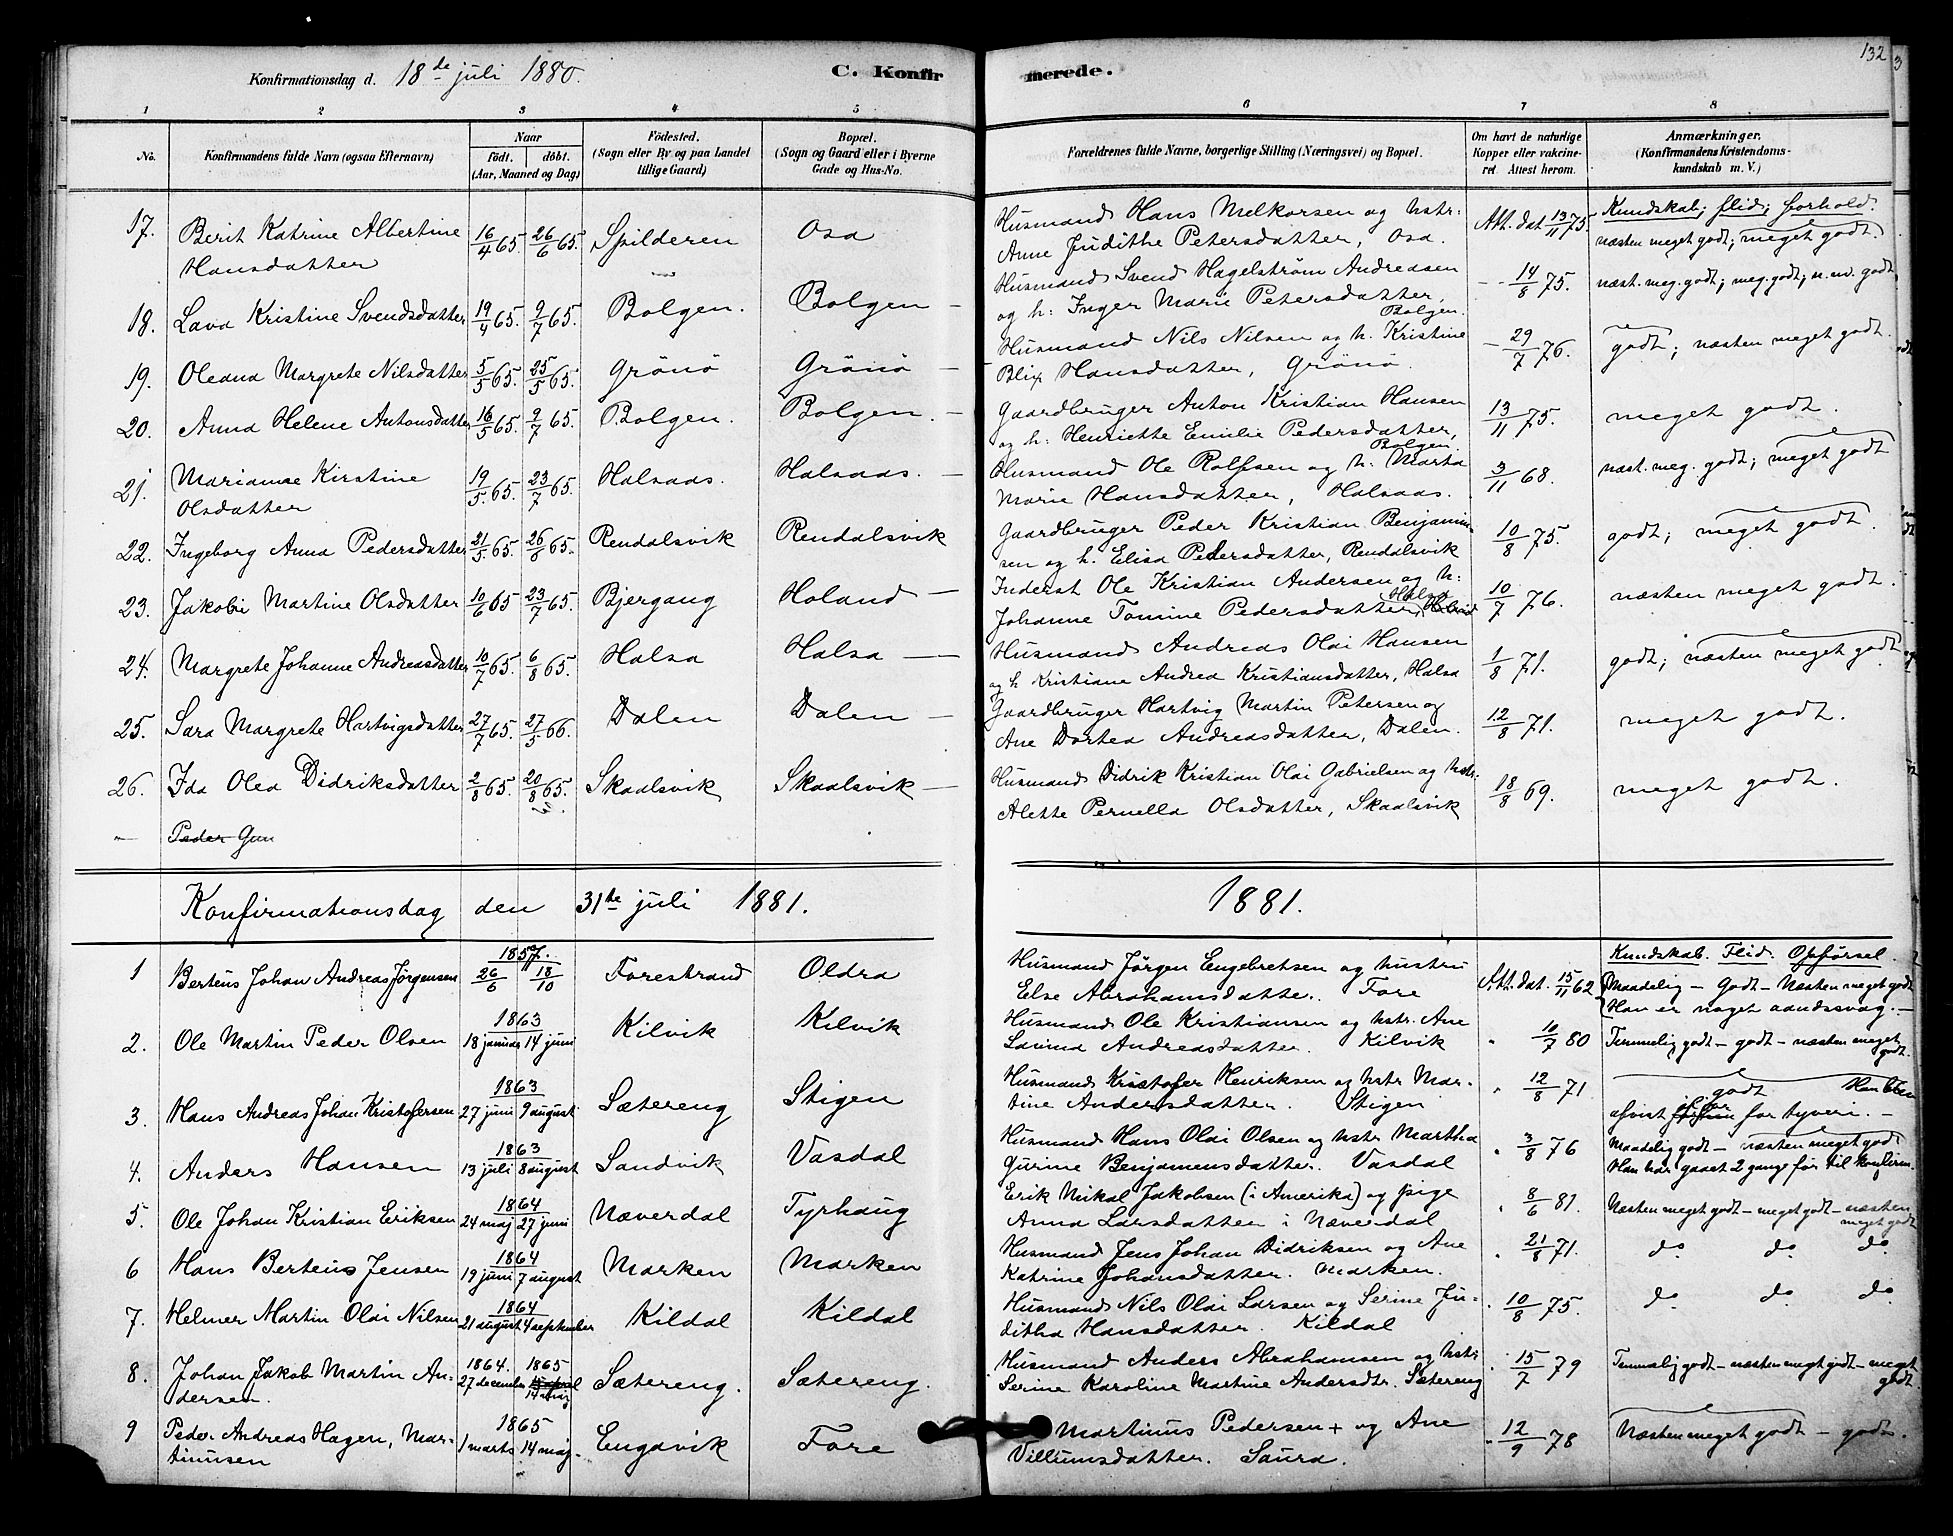 132
Konfirmationsdag d. 18de juli 1880. C. Konfirmerede.
1 2 3 4 5 6 7 8
No. Konfirmandens fulde Navn (ogsaa Efternavn) Naar födt. döbt. (Aar, Maaned og Dag) Födested. (Sogn eller By og paa Landet tillige Gaard) Bopæl. (Sogn og Gaard eller i Byerne Gade og Hus-No. Forældrenes fulde Navne, borgerlige Stilling (Næringsvei) og Bopæl. Om havt de naturlige Kopper eller vakcineret. Attest herom. Anmærkninger. (Konfirmandens Kristendomskundskab m. V.)
Kundskab; flid; forhold.
17. Berit Katrine Albertine Hansdatter 16/4 65. 26/6 65. Spilderen Osa Husmand Hans Melkorsen og hstr: Anne Judithe Petersdatter, Osa. Att. dat 13/11 75. næsten meget godt; meget godt.
18. Lava Kristine Svendsdatter 19/4 65. 9/7 65. Bolgen. Bolgen — Husmand Svend Hagelstrøm Andreasen og h: Inger Marie Petersdatter, Bolgen. - - 14/8 75. næst. meg. godt; meg. godt; n. m. godt
19. Oleana Margrete Nilsdatter 5/5 65. 25/5 65. Grönö Grönö — Husmand Nils Nilsen og h. Kristine Blix Hansdatter, Grönö. - 29/7 76. godt; næsten meget godt.
20. Anna Helene Antonsdatter 16/5 65. 9/7 65. Bolgen. Bolgen. — Gaardbruger Anton Kristian Hansen og h: Henriette Emilie Pedersdatter, Bolgen 13/11 75. meget godt.
21. Marianne Kirstine Olsdatter 19/5. 65. 23/7 65. Halsaas. Halsaas. — Husmand Ole Rolfsen og h. Marta Marie Hansdatter, Halsaas. 3/11 68. næst. meg. godt; meget godt
22. Ingeborg Anna Pedersdatter 21/5 65. 26/6 65. Rendalsvik Rendalsvik Gaardbruger Peder Kristian Benjaminsen og h. Elisa Petersdatter, Rendalsvik 10/8 75. godt; meget godt.
23. Jakobi Martine Olsdatter 10/6 65 23/7 65. Bjergang Holand — Inderst Ole Kristian Andersen og h: Johanne Tomine Pedersdatter, Halsa 10/7 76. næsten meget godt.
24. Margrete Johanne Andreasdatter 10/7 65. 6/8 65. Halsa Halsa — Husmand Andreas Olai Hansen og h Kristiane Andrea Kristiansdatter, Halsa 1/8 71. godt; næsten meget godt
25. Sara Margrete Hartvigsdatter 27/7 65. 27/5 66. Dalen Dalen — Gaardbruger Hartvig Martin Petersen og Ane Dortea Andreasdatter, Dalen. 12/8 71. meget godt.
26. Ida Olea Didriksdatter 2/8 65. 20/8 65. Skaalsvik Skaalsvik — Husmand Didrik Kristian Olai Gabrielsen og hstr: Alette Pernella Olsdatter, Skaalsvik 18/8 69. meget godt.
" Peder Gun
Konfirmationsdag den 31te juli 1881. 1881.
Kundskab. Flid. Opførsel.
1 Berteus Johan Andreas Jørgensen 1857. 26/6 18/10 Forestrand Oldra Husmand Jørgen Engebretsen og hustru Else Abrahamsdatter. Fore Att. dat. 15/11 62 Maadelig — Godt — Næsten meget godt Han er noget aandssvag. —
2. Ole Martin Peder Olsen 1863 18 januar 14 juni Kilvik Kilvik Husmand Ole Kristiansen og hstr. Ane Lavina Andreasdatter. Kilvik " 10/7 80 Temmelig godt — godt — næsten meget godt.
3. Hans Andreas Johan Kristofersen 1863 27 juni 9 august Sætereng Stigen Husmand Kristofer Henriksen og hstr Martine Andersdatter. Stigen " 12/8 71 godt Han blev afvist ifjor for tyveri. —
4. Anders Hansen 1863 13 juli 8 august Sandvik Vasdal Husmand Hans Olai Olsen og hstr Martha Gurine Benjamensdatter. Vasdal " 3/8 76 Maadelig godt — næsten meget godt Han har gaaet 2 gange før til konfirm.
5. Ole Johan Kristian Eriksen 1864 24 maj 27 juni Næverdal Tyrhaug Erik Mikal Jakobsen (i Amerika) og pige Anna Larsdatter i Næverdal " 8/6 81. Næsten meget godt — meget godt — næsten meget godt
6 Hans Berteus Jensen 1864 19 juni 7 august Marken Marken Husmand Jens Johan Didriksen og Ane Katrine Johansdatter. Marken. " 21/8 71. do do do
7. Helmer Martin Olai Nilsen 1864 21 august 4 september Kildal Kildal Husmand Nils Olai Larsen og Serine Juditha Hansdatter. Kildal " 10/8 75. do do do
8. Johan Jakob Martin Andersen. 1864. 27 december 1865 14 maj Sætereng. Sætereng. Husmand Anders Abrahamsen og hstr: Serine Karoline Martine Andersdtr. Sætereng " 15/7 79 Temmelig godt — næsten meget godt — meget godt.
9 Peder Andreas Hagen, Martinusen 1865 1 marts. 14 maj. Engavik Fore Martinus Pedersen + og Ane Villumsdatter. Saura. " 12/9 78 Næsten meget godt — godt.